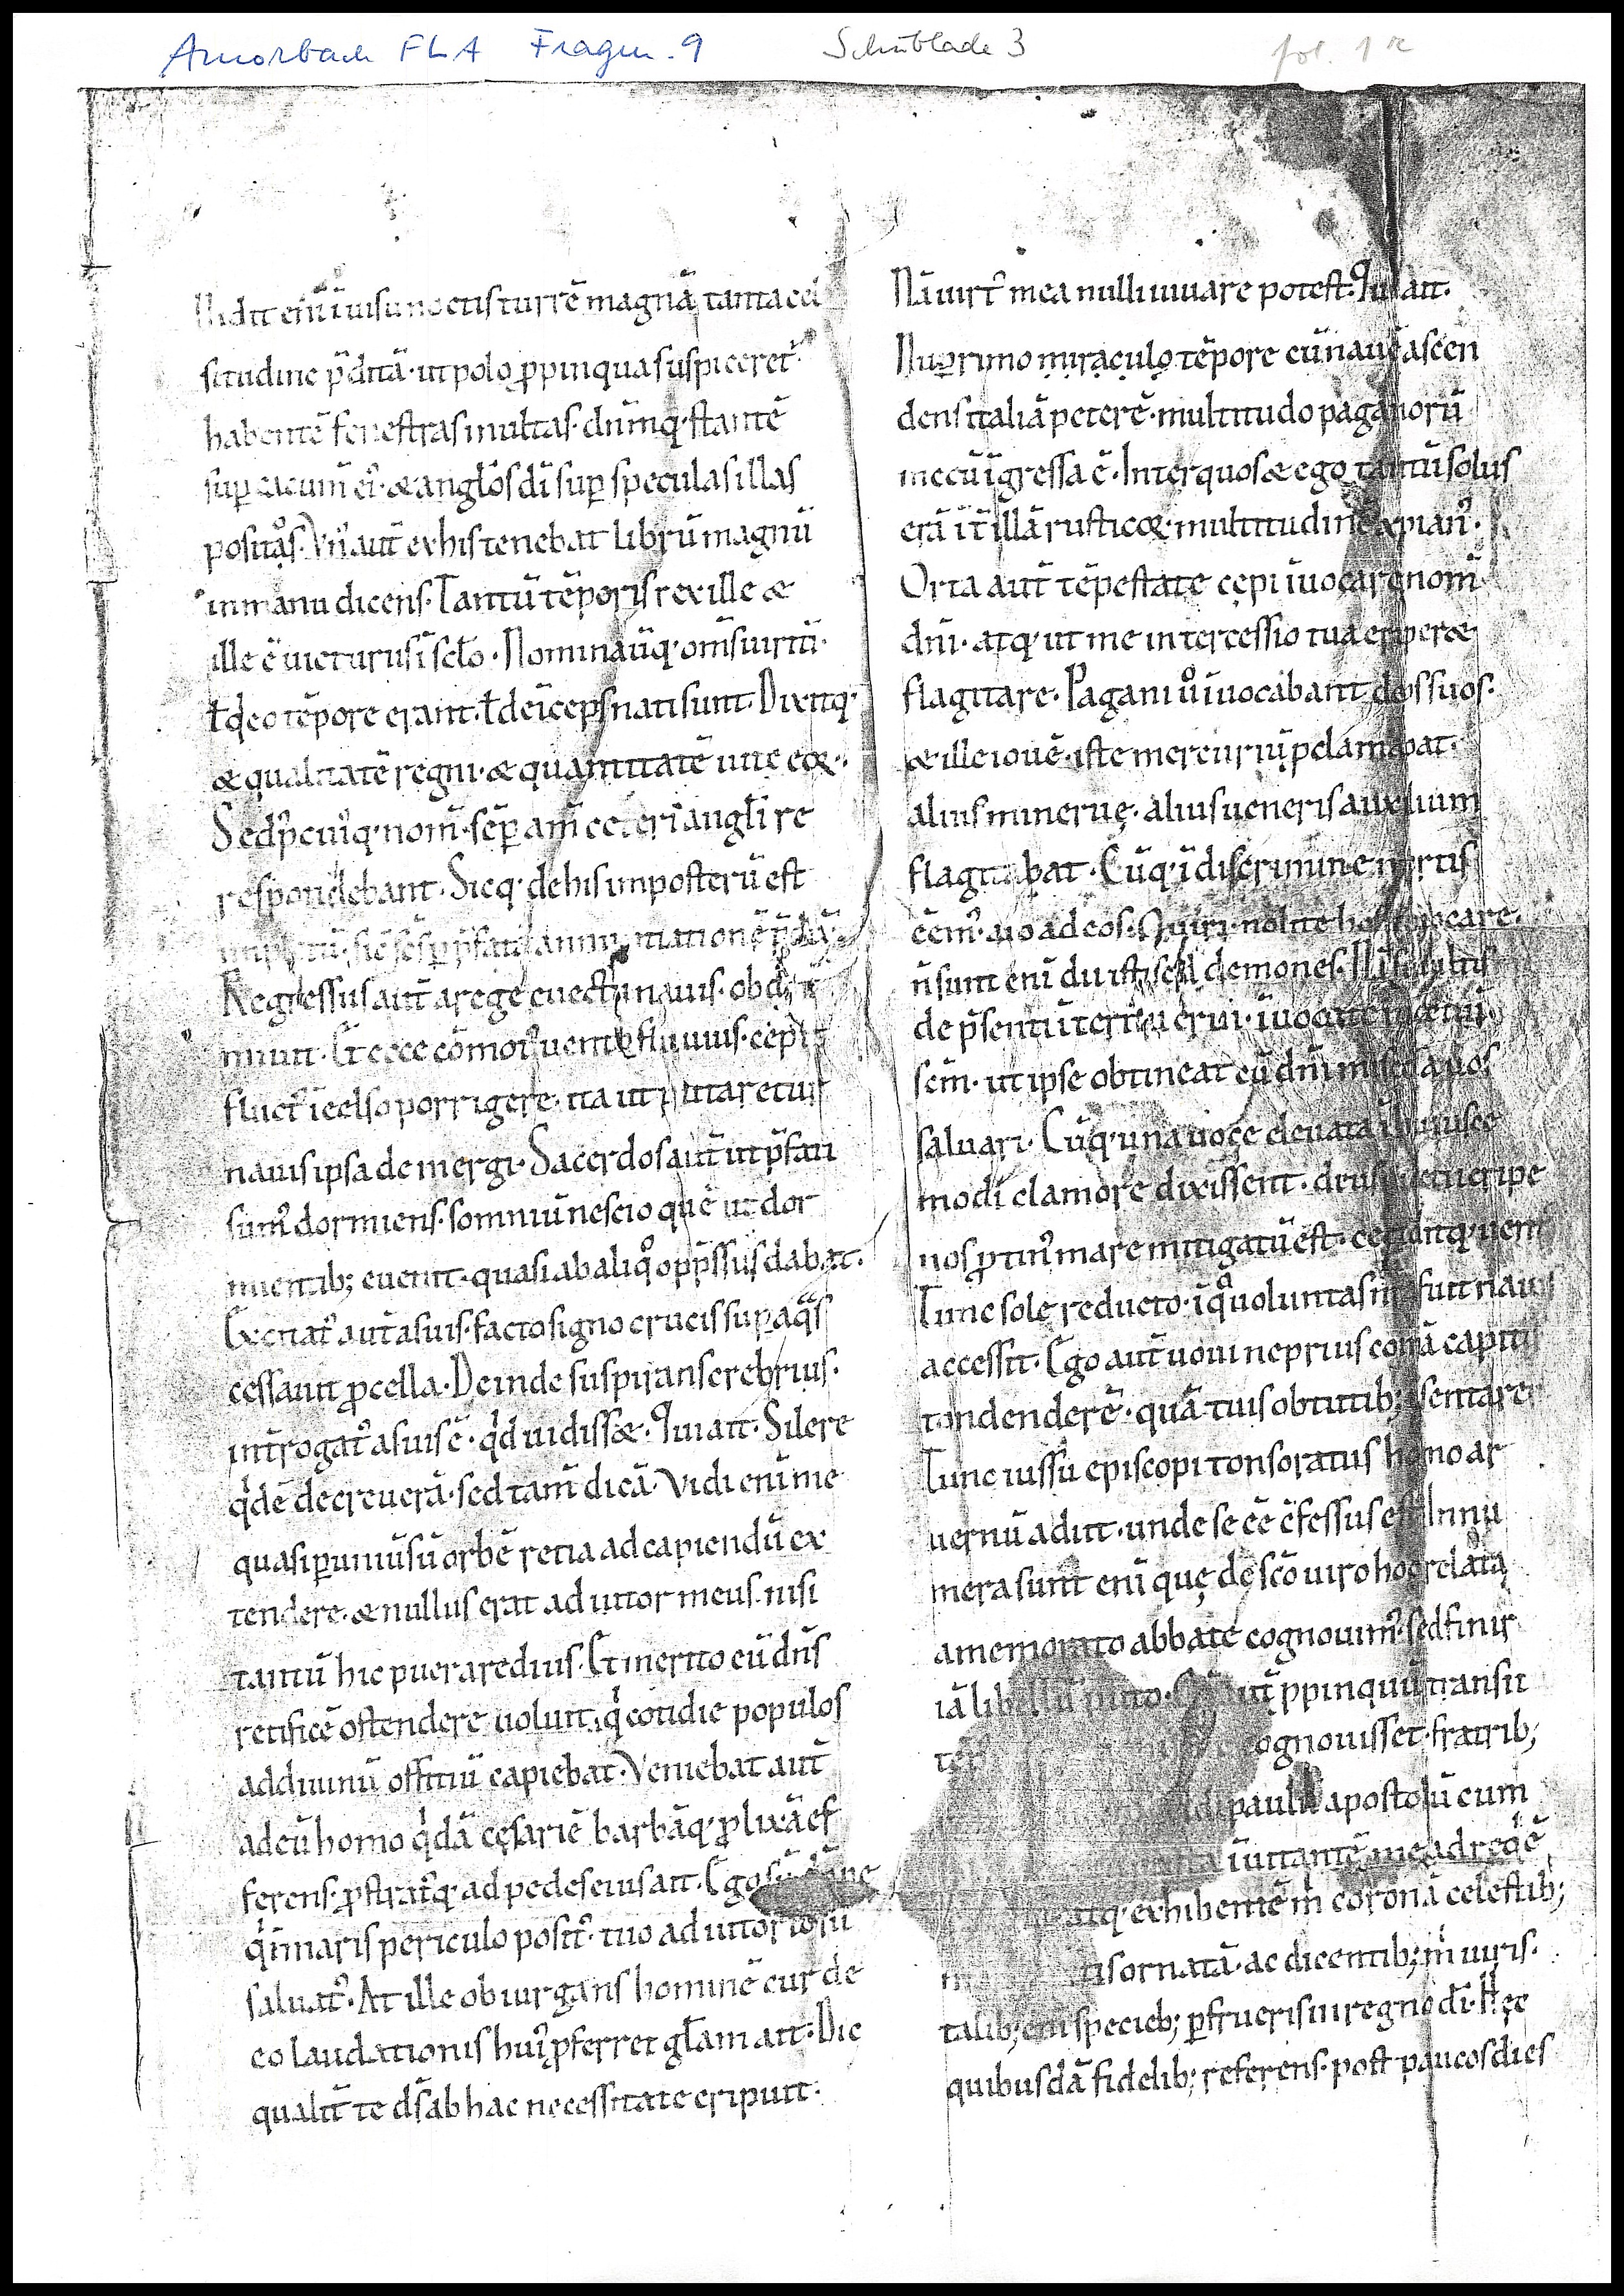 Amorbach FLA Fragm. 9 Schublade 3 fol. 1 r
Vidit eni ̄ i ̄ uisu noctis turrē magnā tanta cel
situdine p̄ditā· ut polo ꝓpinqua suspiceret᷒
habentē fenestras multas· dn̄mq· stantē
suꝑ cacumē ei᷒· & angl̄os dī suꝑ speculas illas
positos· Vn᷒ aut̄ ex his tenebat librū magnū
in manu dicens· Tantū tēporis rex ille &
ille ē uicturus ī sclo· Nominauitq· om̄s uirtī·
ł q eo tēpore erant· ł deīceps nati sunt· Dixitq·
& qualitatē regni· & quantitatē uite eoꝝ·
Sed p̄ cui᷒q· nom̄· sēꝑ am̄ ceteri angli re
respondebant· Sicq· de his imposterū est
Regressus aut̄ a rege euectū nauis·
niunt· Et ecce cōmot᷒ uento fluuius· cepit
fluct᷒ ī celso porrigere· ita ut putaretur
nauis ipsa demergi· Sacerdos aut̄ ut p̄fati
sum᷒ dormiens· somniū nescio quē ut dor
mientib; euenit· quasi ab aliqͦ opp̄ssus dabat·
Excitat᷒ aut̄ a suis· facto signo crucis suꝑ aqͣs
cessauit ꝓcella· Deinde suspirans crebrius·
int̄rogat᷒ a suis ē· qͥd uidiss&· Qui ait· Silere
qͥdē decreuerā· sed tam̄ dicā· Vidi enī me
quasi ꝑ uniūsū orbē retia ad capiendū ex
tendere· & nullus erat adiutor meus nisi
tantū hic puer aredius· Et merito eū dn̄s
retificē ostendere uoluit· qͥ cotidie populos
ad diuinū offitiū capiebat· Veniebat aut̄
ad eū homo qͥdā cęsariē barbāq· ꝓlixā ef
ferens· ꝓstrat᷒q· ad pedes eius ait· Ego sū
qͥ ī maris periculo posit᷒· tuo adiutorio sū
saluat᷒· At ille obiurgans hominē cur de
eo laudationis hui᷒ p̄ferret gl̄am ait· Dic
qualit̄ te d̄s ab hac necessitate eripuit·
Nā uirt᷒ mea nulli iuuare potest· Qui ait·
Nuꝑ rimo miraculo tēpore cū nauē ascen
dens italiā peterē· multitudo paganorū
mecū īgressa ē· Inter quos & ego tantū solus
erā īt̄ illā rusticoꝝ· multitudinē xpian᷒·
Orta aut̄ tēpestate cępi īuocare nom̄
dni· atq· ut me intercessio tua eriper&
flagitare· Pagani ūͦ īuocabant deos suos·
& ille iouē· iste mercuriū ꝓclamabat·
alius minerue· alius ueneris auxilium
flagitabat· Cūq· ī discrimine mortis
eēm᷒· aio ad eos· O uiri· nolite hos īuocare·
n̄ sunt enī dii isti sed demones· Nisi uultis
de p̄senti īteritu erui· īuocate nicetiū
scm̄· ut ipse obtineat cū dn̄i misedia uos
saluari· Cūq· una uoce eleuata in huiusce
modi clamore dixissent· deus nicetii eripe
nos ꝓtin᷒ mare mitigatū est· ceciditq· uent᷒
Tunc sole reducto· ī qͣ uoluntas fuit nauis
accessit· Ego aut̄ uoui ne prius comā capitis
tondenderē· quā tuis obtutib; p̄sentarer
Tunc iussu episcopi tonsoratus homo ar
uernū adiit· unde se eē cfessus est· Innu
mera sunt enī quę de scō uiro hoc relata
a memorato abbate cognouim᷒· sed finir
iā libellū puto· ꝓpinquū transit
ognouisset fratrib;
paulū apostolū cum
īuitantē me ad regē
atq· exhibentē m̄ coronā celestib;
is ornatā· ac dicentib; m̄ uiris·
talib; enī specieb; ꝑfrueris in regno dī· Hęc
quibusdā fidelib; referens· post paucos dies